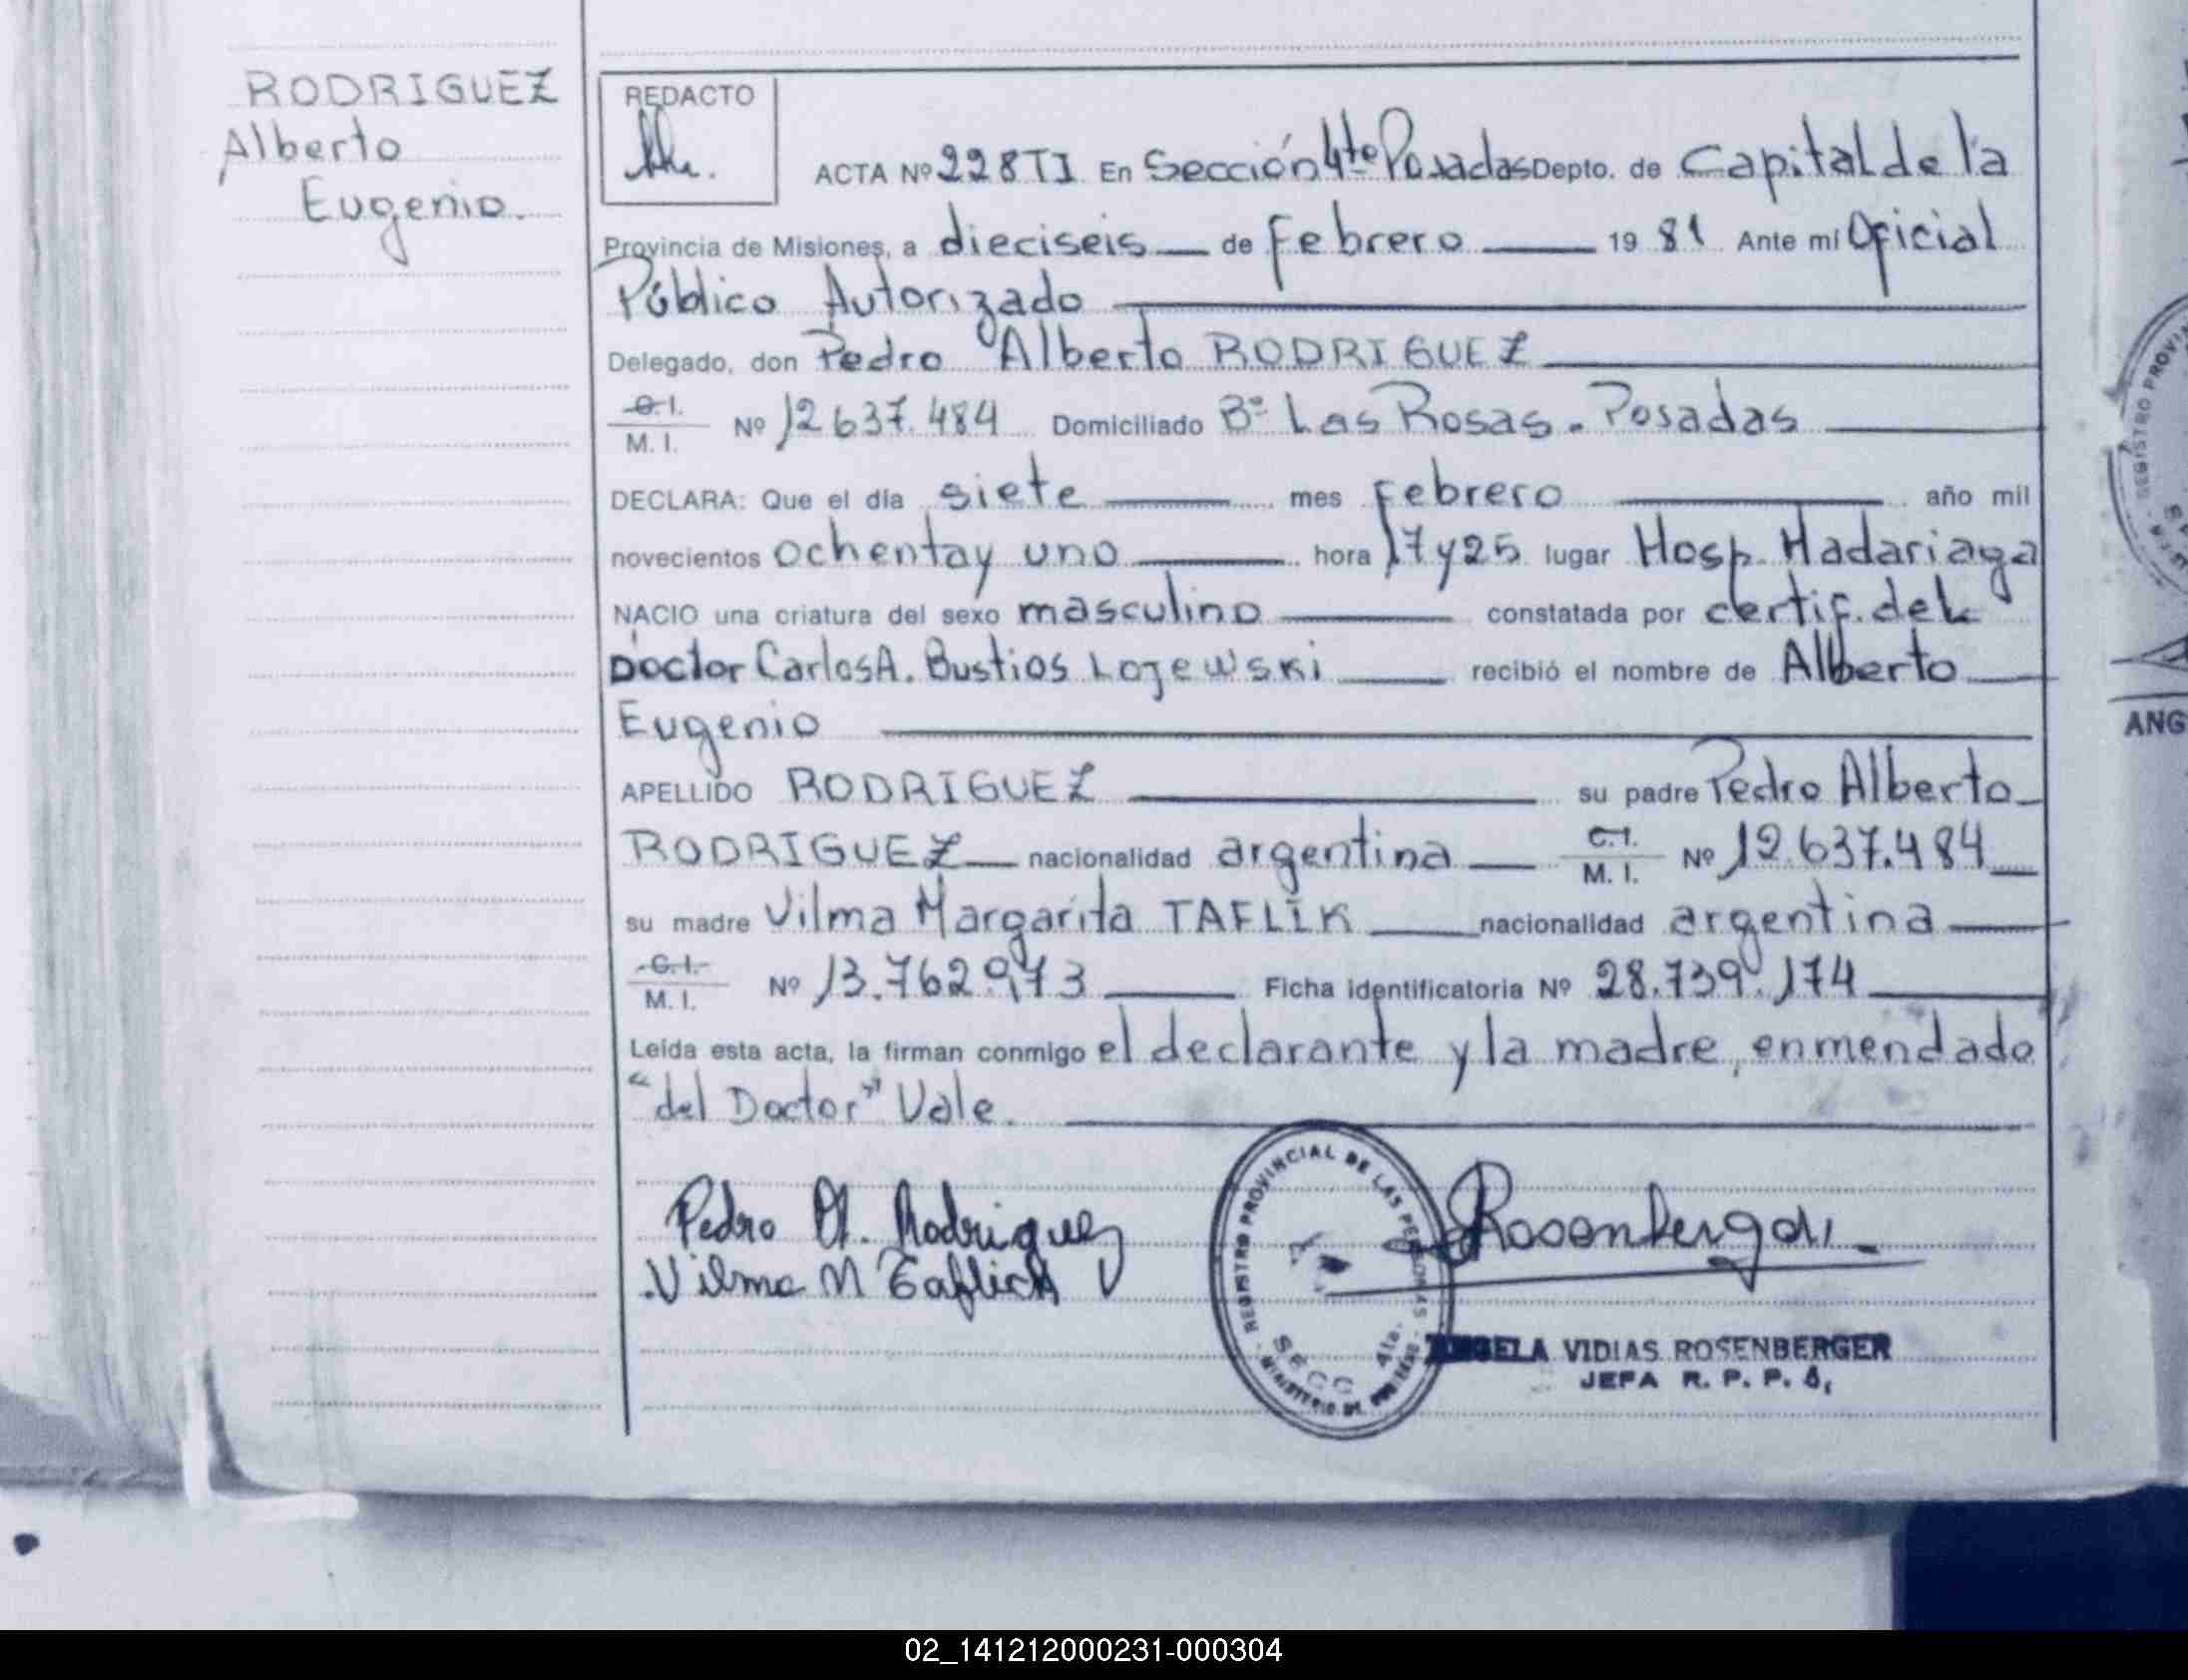 RODRIGUEZ
Alberto
Eugenio.
REDACTO
ACTA Nº 228TI En Sección 4te Posadas Depto. de Capital de la
Provincia de Misiones, a dieciseis de Febrero 19 81 Ante mí Oficial
Público Autorizado
Delegado, don Pedro Alberto RODRIGUEZ
C.I.
M. I. Nº 12637.484 Domiciliado Bº Las Rosas. Posadas
DECLARA: Que el día siete mes Febrero año mil
novecientos ochentay uno hora 17y25 lugar Hosp. Madariaga
NACIO una criatura del sexo masculino constatada por certif. del
Doctor Carlos A. Bustios Lojewski recibió el nombre de Alberto
Eugenio
APELLIDO RODRIGUEZ su padre Pedro Alberto
RODRIGUEZ nacionalidad argentina C.I. M. I. Nº 12.637.484
su madre Vilma Margarita TAFLIK nacionalidad argentina
C.I.
M. I. Nº 13.762973 Ficha identificatoria Nº 28.739.174
Leída esta acta, la firman conmigo el declarante y la madre, enmendado
"del Doctor" Vale.
Pedro A. Rodriguez
Vilma M Taflick
REGISTRO PROVINCIAL DE LAS PERSONAS
SECC 4ta.
MINISTERIO DE GOBIERNO
ANGELA VIDIAS ROSENBERGER
JEFA R. P. P. 4,
ANG
02_141212000231-000304